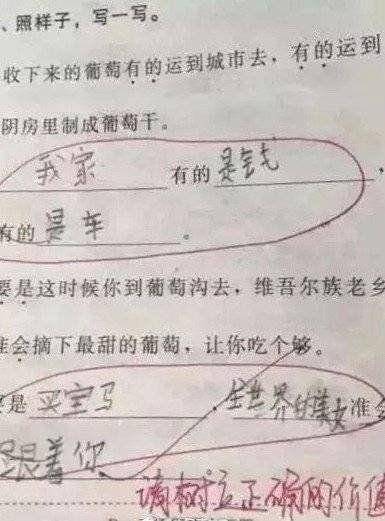 、照样子，写一写。
收下来的葡萄有的运到城市去，有的运到
阴房里制成葡萄干。
我家 有的 是钱 ，
有的 是车 。
要是这时候你到葡萄沟去，维吾尔族老乡
准会摘下最甜的葡萄，让你吃个够。
是 买宝马 ，全世界的美女 准会
跟着你
请树立正确的价值